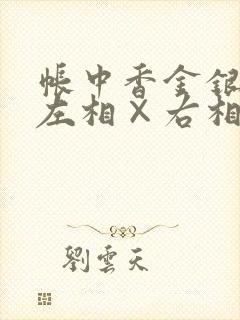 帳中香金銀
左相×右相
劉雲天